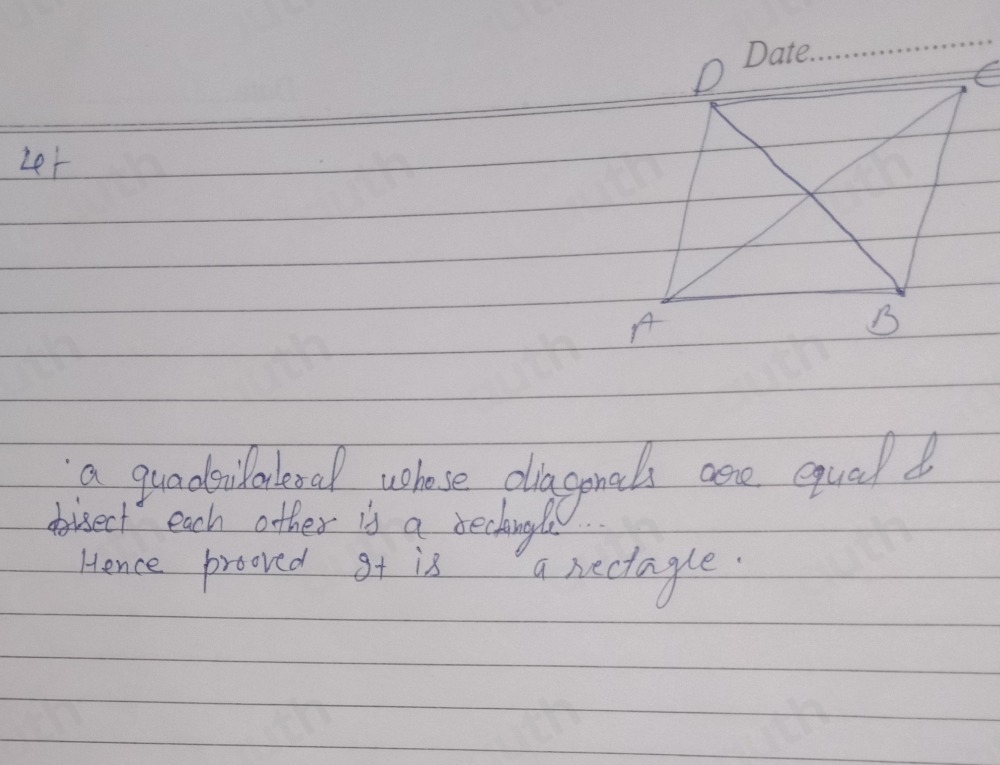 Date....................
D C
let
A B
a quadrilateral whose diagonals are equal &
bisect each other is a rectangle...
Hence prooved It is a rectagle.